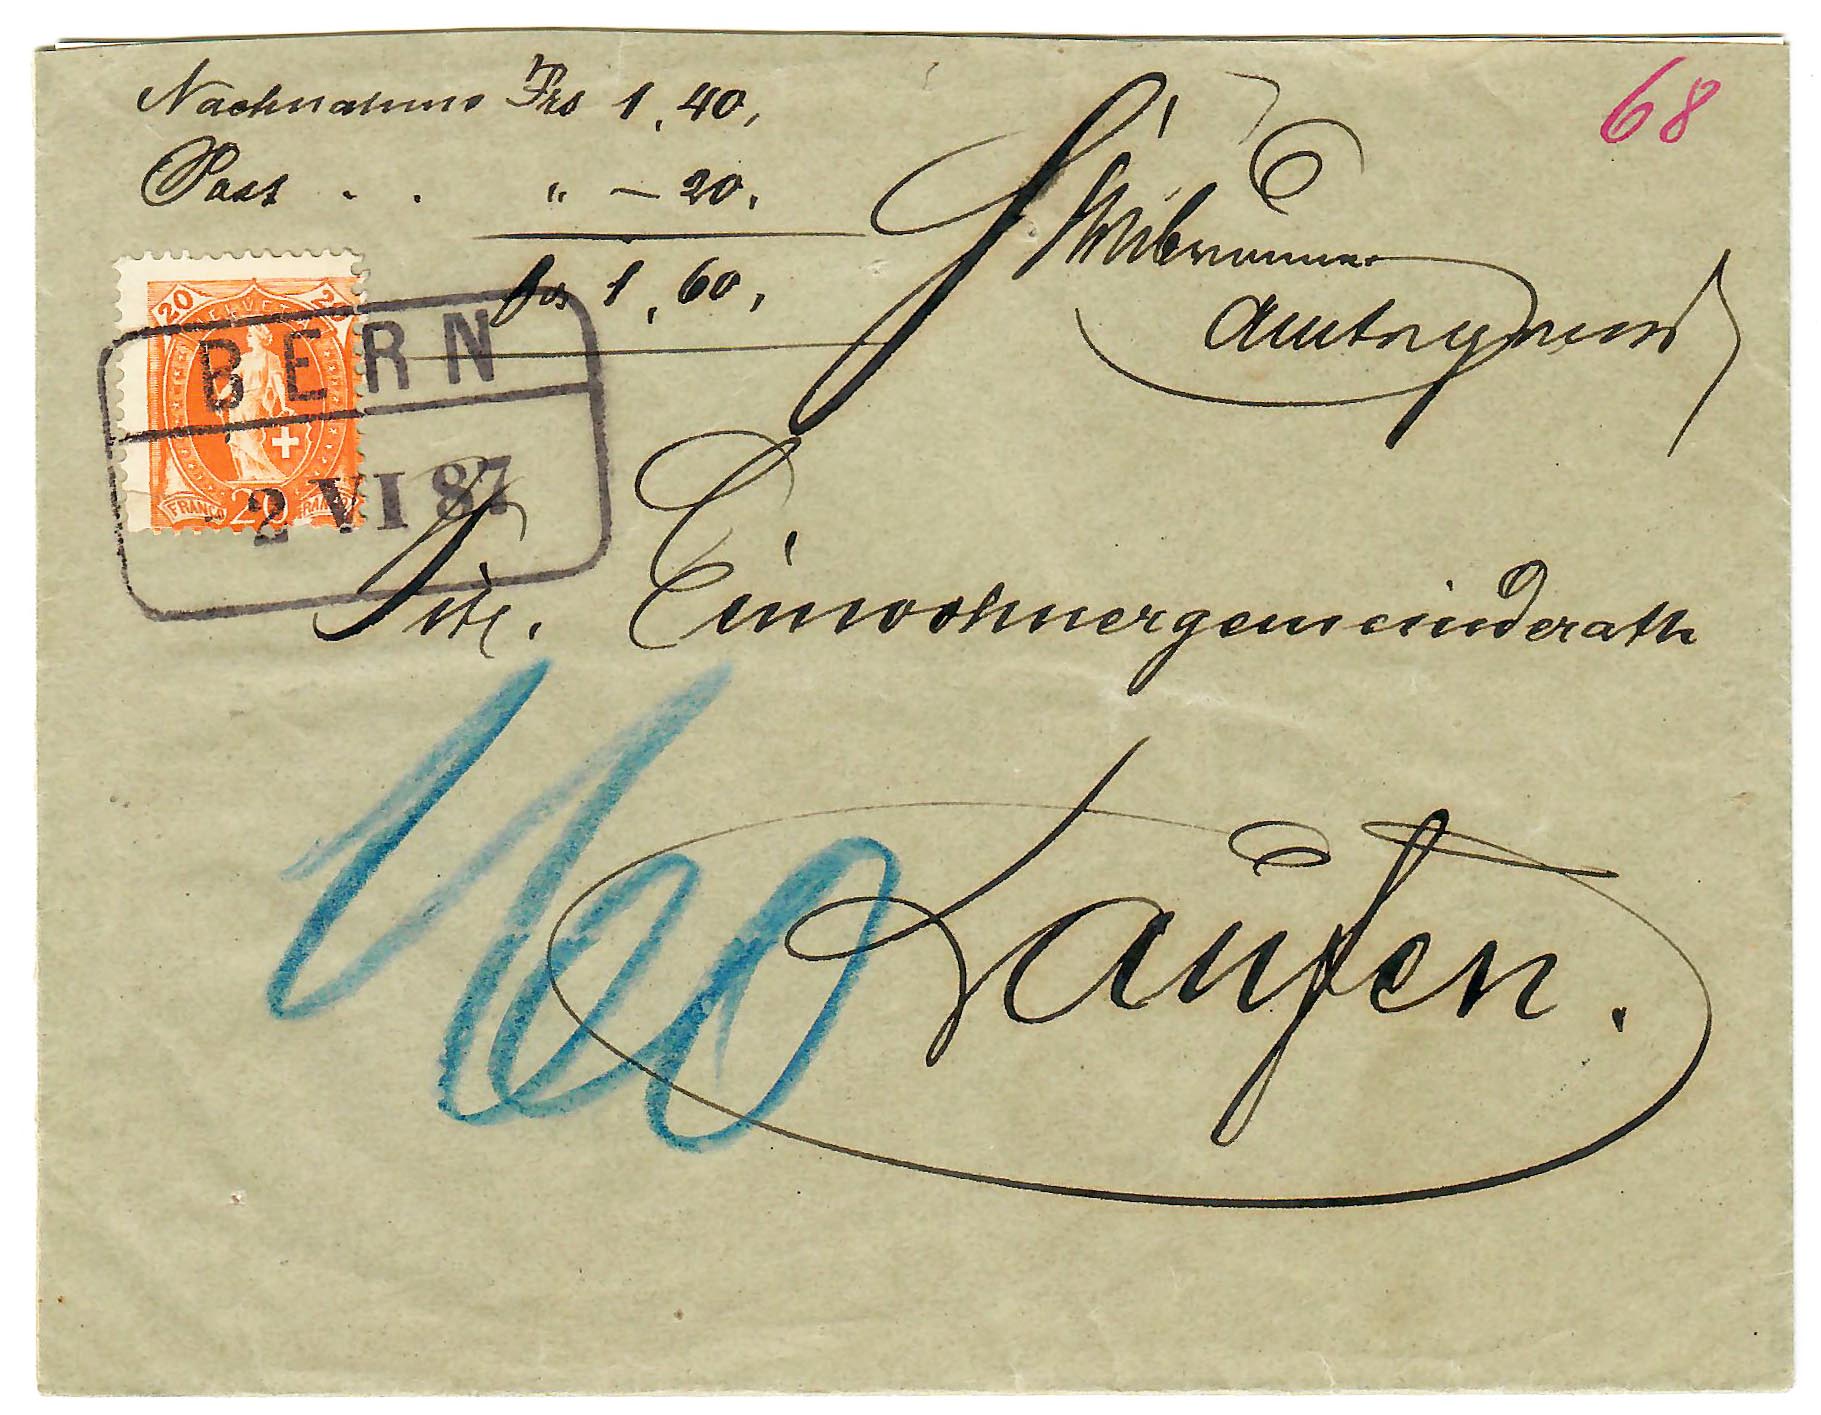 Nachnahme Frs 1.40,
Post . . " — 20.
frs 1.60,
68
20 20
HELVETIA
FRANCO 20 FRANCO
BERN
2 VI 87
Tit. Einwohnergemeinderath
160
Laufen.